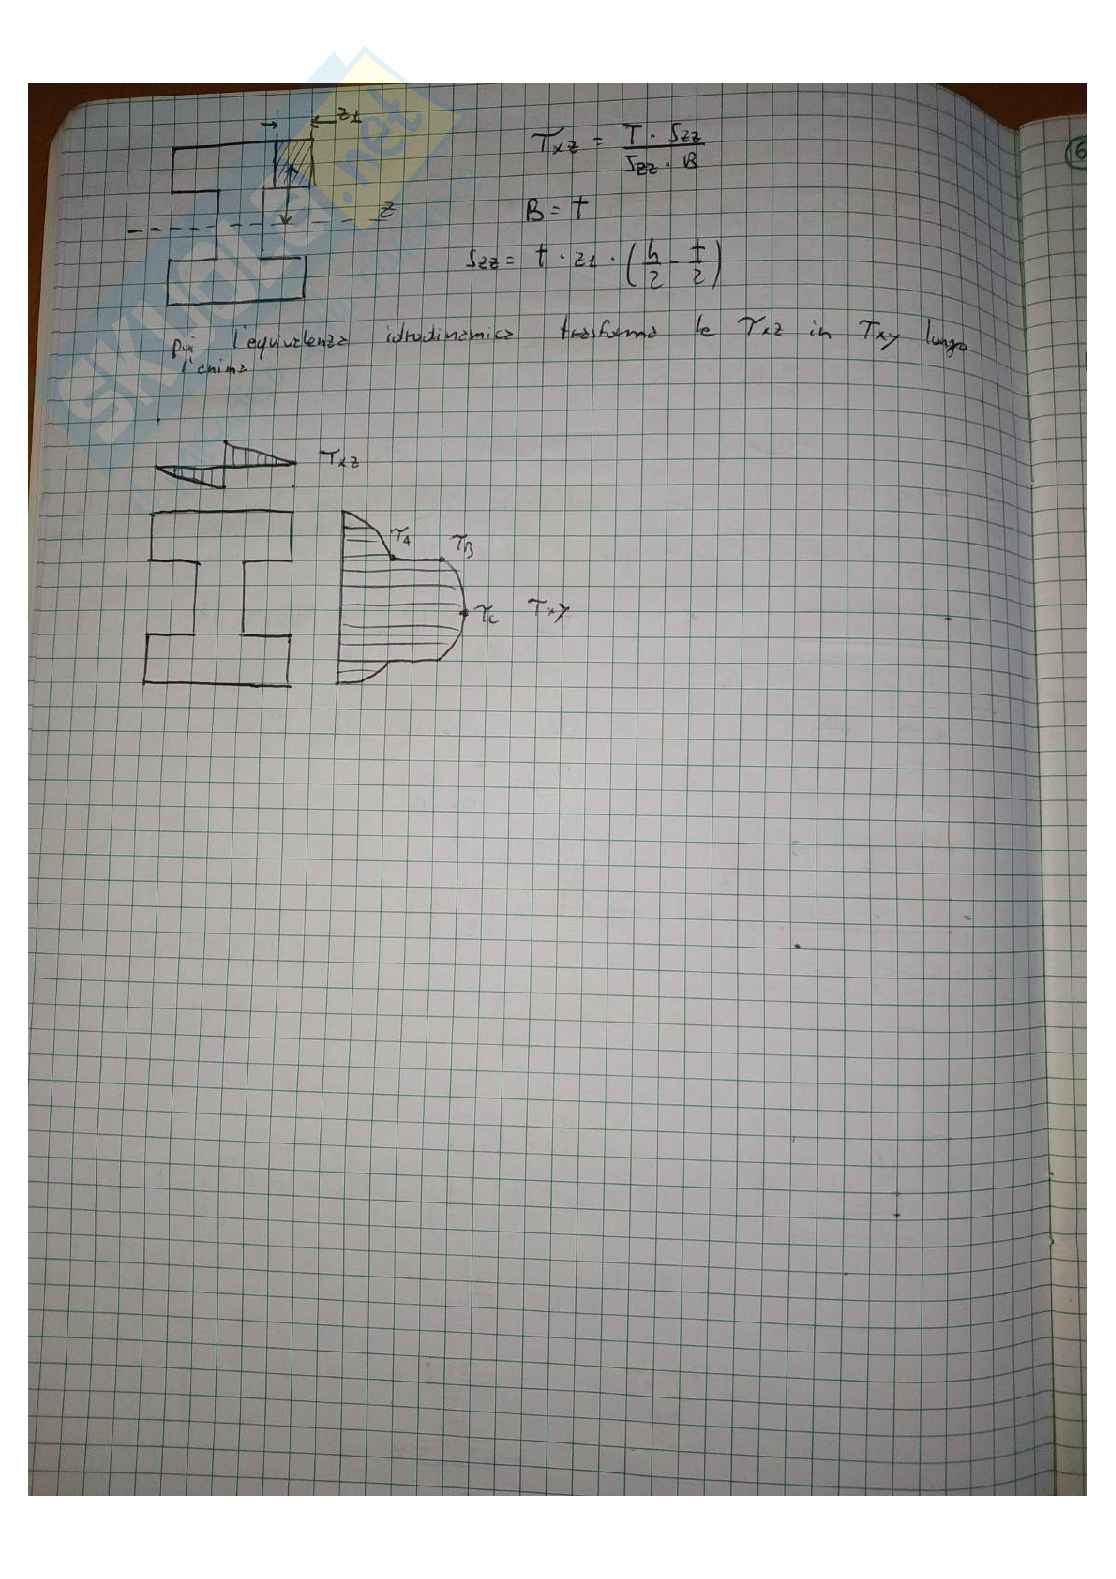 z1
τxz = T · Szz / Szz · B
z
B = t
Szz = t · z1 · (h/2 - t/2)
poi l'equivalenza idrodinamica trasforma le τxz in τxy lungo
l'anima
τxz
τA
τB
τc
τxy
6
SKUOLA.net